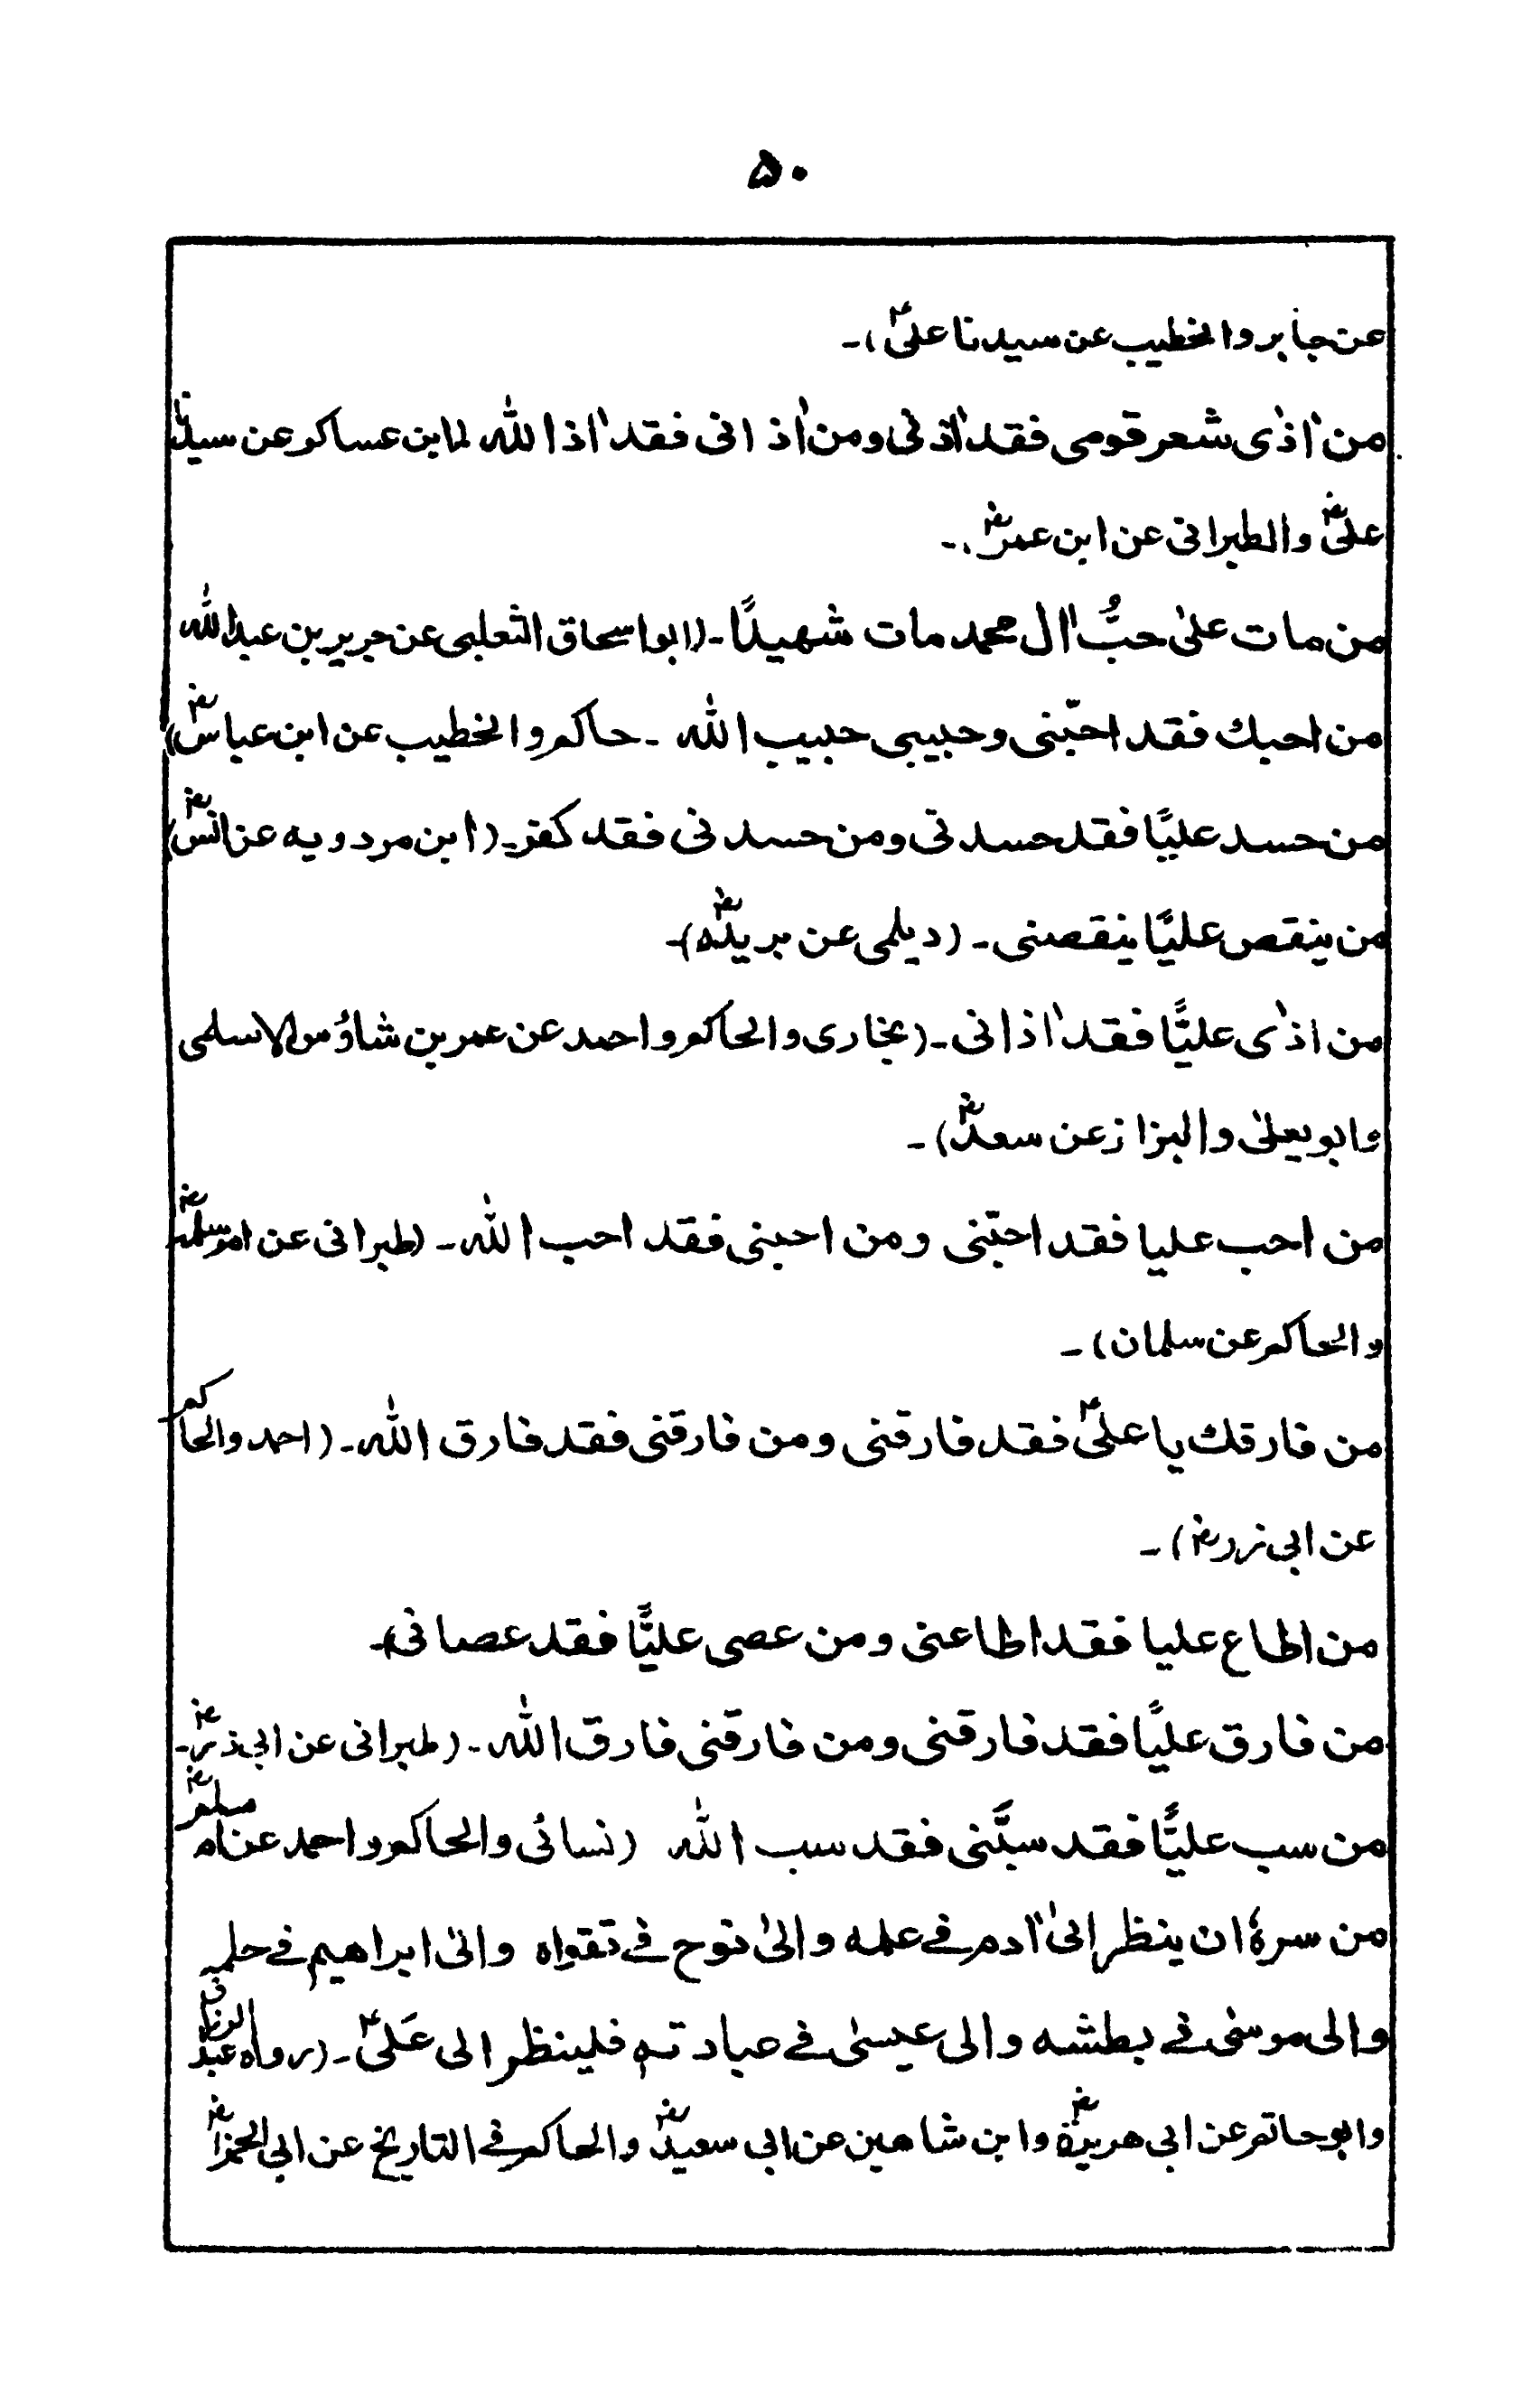 ۵۰
عن جابر والخطیب عن سیدنا علیؑ)۔
من اٰذی شعر قومی فقد اٰذنی ومن اٰذ انی فقد اٰذا اللّٰہ لما بن عساکر عن سیدنا
علیؓ والطبرانی عن ابن عمرؓ۔
من مات علیٰ حبُّ اٰل محمد مات شھیدًا۔ (ابو اسحاق الثعلبی عن جریر بن عبداللّٰہ
من احبك فقد احبّنی وحبیبی حبیب اللّٰہ ۔ حاکم والخطیب عن ابن عباسؓ)
من حسد علیًا فقد حسدنی ومن حسدنی فقد کفر۔ (ابن مردویه عن انسؓ)
من ینقص علیًا ینقصنی۔ (دیلمی عن بریدہؓ)۔
من اذٰی علیًّا فقد اٰذانی۔ (بخاری والحاکم واحمد عن عمر بن شاؤس الاسلمی
وابو یعلیٰ والبزاز عن سعدؓ)۔
من احب علیا فقد احبّنی ومن احبنی فقد احب اللّٰہ۔ (طبرانی عن ام سلمہؓ
والحاکم عن سلمان)۔
من فارقك یا علیؑ فقد فارقنی ومن فارقنی فقد فارق اللّٰہ۔ (احمد والحاکم
عن ابی زررؓ)۔
من اطاع علیا فقد اطاعنی ومن عصی علیًّا فقد عصانی)۔
من فارق علیًا فقد فارقنی ومن فارقنی فارق اللّٰہ۔ (طبرانی عن ابی ذرؓ۔
من سب علیًّا فقد سبَّنی فقد سب اللّٰہ (نسائی والحاکم واحمد عن ام سلمہؓ
من سرہٗ ان ینظر الیٰ اٰدم فے علمه والیٰ نوح فے تقواہ والیٰ ابراھیم فے حلمہ
والی موسیٰ فے بطشه والی عیسیٰ فے عبادتہ فلینظر الی عَلیؑ۔ (رواہ عبدالرزاق
وابو حاتم عن ابی ھریرۃؓ وابن شاھین عن ابی سعیدؓ والحاکم فے التاریخ عن ابی الحمراؓ